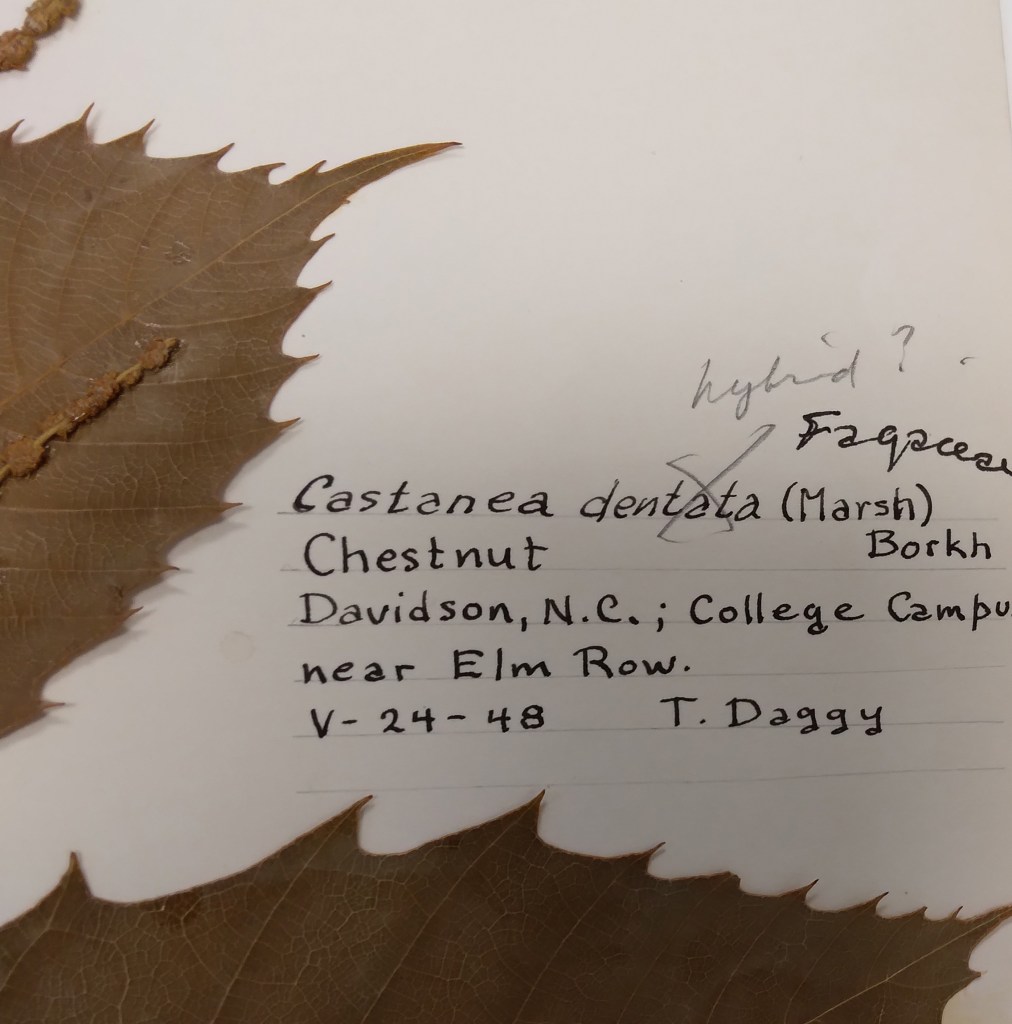 hybrid?
Fagaceae
Castanea dentata (Marsh)
Borkh
Chestnut
Davidson, N.C.; College Campu
near Elm Row.
V-24-48 T. Daggy